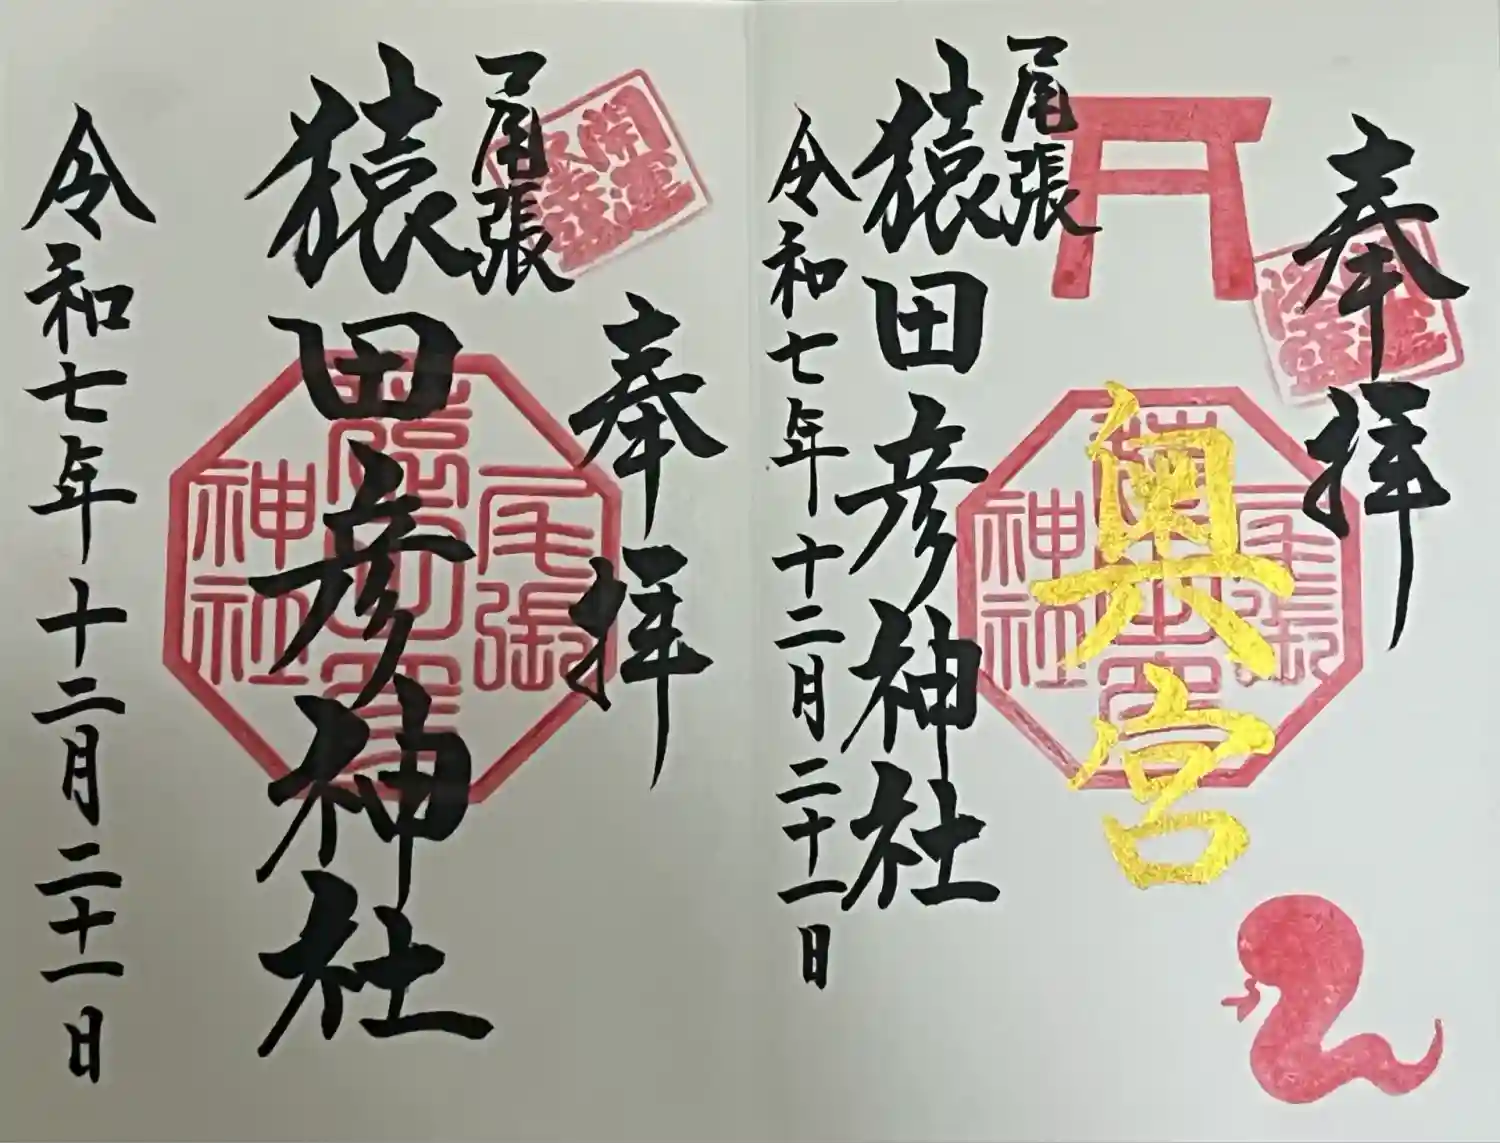 奉拝
奥宮
尾張
猿田彦神社
令和七年十二月二十一日
尾張
神社
奉拝
尾張
猿田彦神社
令和七年十二月二十一日
尾張
神社
開運